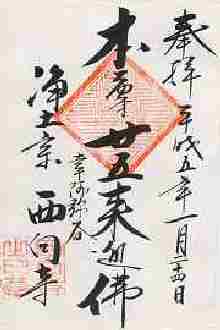 奉拝 平成五年一月二十四日
本尊 廿五来迎佛
浄土宗 西向寺